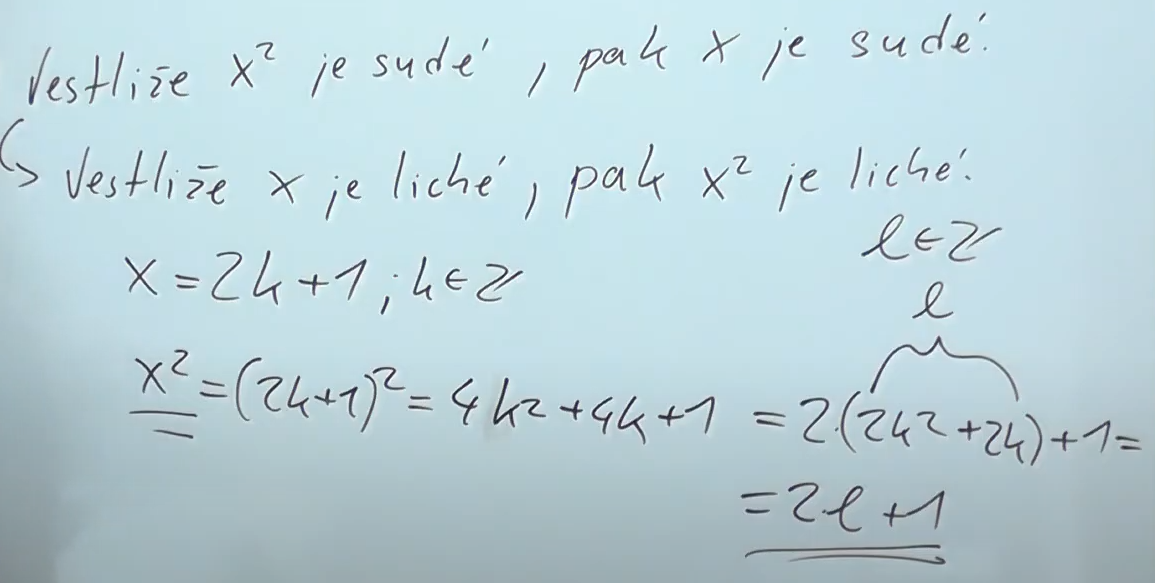 Jestliže x² je sudé, pak x je sudé.
↳ Jestliže x je liché, pak x² je liché.
x = 2k+1 ; k∈ℤ
l∈ℤ
l
x² = (2k+1)² = 4k² + 4k + 1 = 2·(2k² + 2k) + 1 =
= 2·l + 1